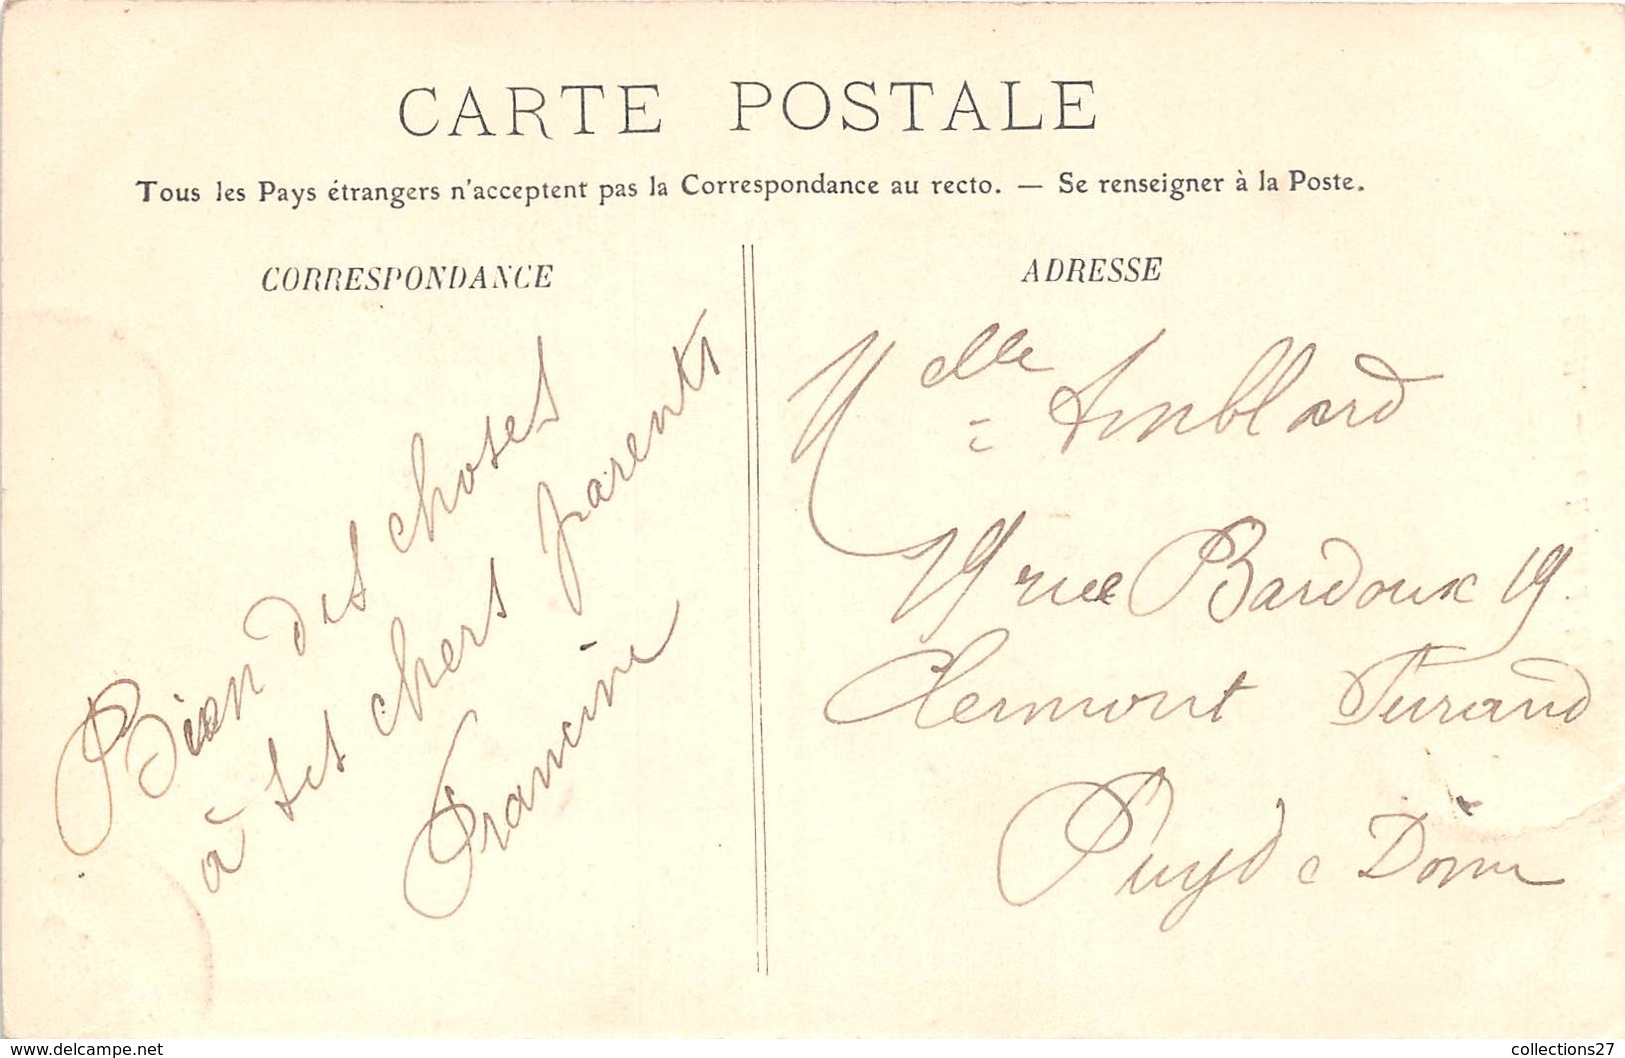 CARTE POSTALE
Tous les Pays étrangers n'acceptent pas la Correspondance au recto. — Se renseigner à la Poste.
CORRESPONDANCE
Bien des choses
à tes chers parents
Francine
ADRESSE
Mdlle Amblard
19 rue Bardoux 19
Clermont Ferrand
Puyd e Dôme
www.delcampe.net
collections27